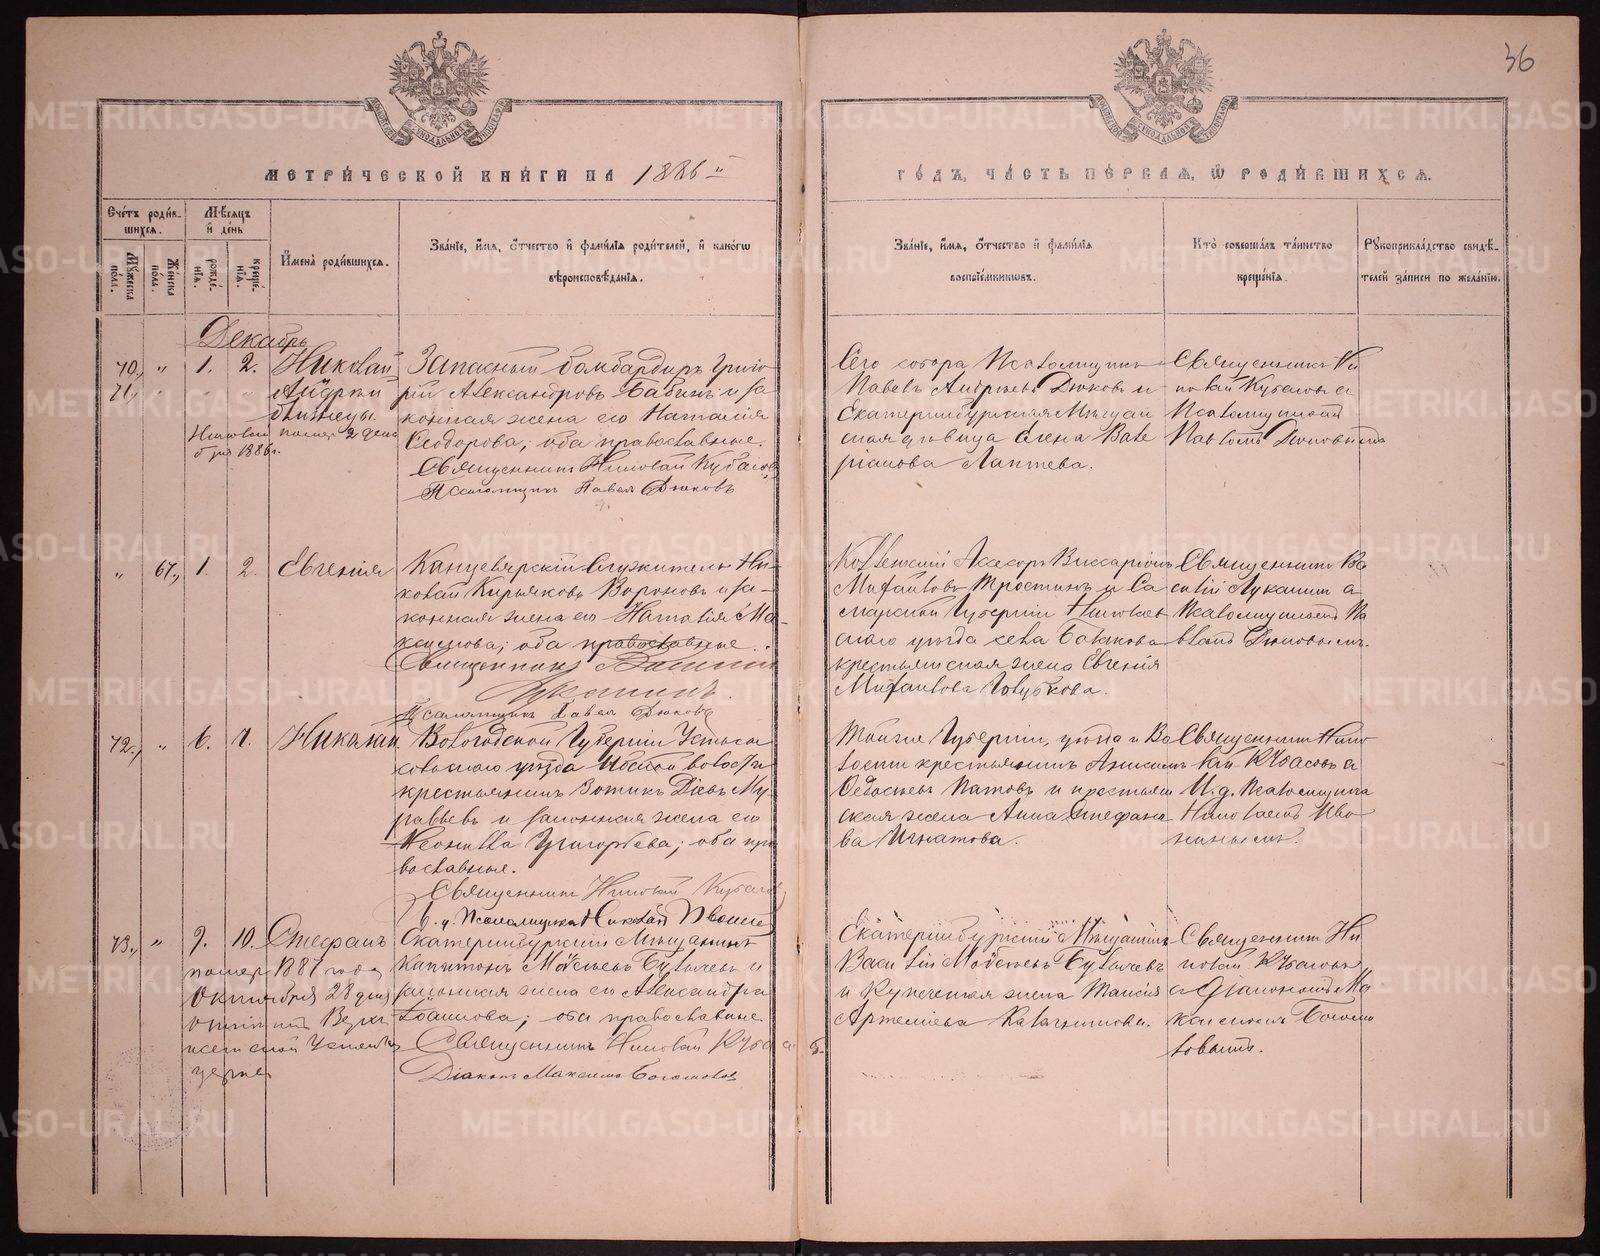 36
МЕТРИЧЕСКОЙ КНИГИ НА 1886й
ГОДЪ, ЧАСТЬ ПЕРВАЯ, Ѡ РОДИВШИХСЯ.
Счетъ родив-
шихся.
Мѣсяцъ
и день
Мужеска
пола.
Женска
пола.
рожде-
нія.
креще-
нія.
Имена родившихся.
Званіе, имя, отчество и фамилія родителей, и какогѡ
вѣроисповѣданія.
Званіе, имя, отчество и фамилія
воспріемниковъ.
Кто совершалъ таинство
крещенія.
Рукоприкладство свидѣ-
телей записи по желанію.
Декабрь
70., " 1. 2. Николай
71., " " " Андрей
близнецы.
Николай помер 2 дек
1886г.
Запасный бомбардиръ Григо
рій Александровъ Бабинъ и за
конная жена его Наталія
Ѳеодорова; оба православные.
Священникъ Николай Кубасовъ
Псаломщикъ Павелъ Дюковъ
Сего собора Псаломщикъ
Павелъ Андреевъ Дюковъ и
Екатеринбургская Мѣщан
ская дѣвица Елена Вале
ріанова Лаптева.
Священникъ Ни
колай Кубасовъ с
Псаломщикомъ
Павломъ Дюковымъ
" 67., 1. 2. Евгенія
Канцелярскій Служитель Ни-
колай Кирьяковъ Вороновъ и за-
конная жена его Наталія Ма-
ксимова; оба православные.
Священникъ Василій
Луканинъ.
Псаломщикъ Павелъ Дюковъ
Коллежскій Асессоръ Виссаріонъ
Михаиловъ Тростинъ и Са
марской Губерніи Николаев
скаго уѣзда села Балакова
крестьянская жена Евгенія
Михаилова Голубкова.
Священникъ Ва
силій Луканинъ с
Псаломщикомъ Па
вломъ Дюковымъ.
72., " 6. 7. Николай
Вологодской Губерніи Устьсы
кольскаго уѣзда Ибской волости
крестьянинъ Зотикъ Діевъ Му-
равьевъ и законная жена его
Неонилла Григорьева; оба пра
вославные.
Священникъ Николай Кубасовъ
И. д. Псаломщика Николай
Тойже Губерніи, уѣзда и Во
лости крестьянинъ Анисимъ
Ѳедосѣевъ Патовъ и крестьян
ская жена Анна Стефано
ва Игнатова.
Священникъ Нико
лай Кубасовъ с
И. д. Псаломщика
Николаемъ
73., " 9. 10. Стефанъ
помер 1887 года
Октября 28 дня
Екатеринбургскій Мѣщанинъ
Капитонъ Моѵсеевъ Булычевъ и
законная жена его Александра
Іоаннова; оба православные.
Священникъ Николай Кубасовъ
Діаконъ Максимъ Богомоловъ
Екатеринбургскій Мѣщанинъ
Василій Моѵсеевъ Булычевъ
и Купеческая жена Таисія
Артеміева Калашникова.
Священникъ Ни
колай Кубасовъ
с Діакономъ Ма
ксимомъ Богомо
ловымъ.
METRIKI.GASO-URAL.RU